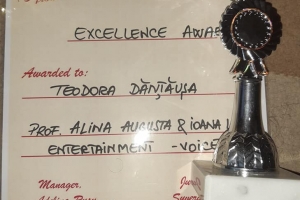 EXCELLENCE AWA
Awarded to:
TEODORA DĂNȚĂUȘA
PROF. ALINA AUGUSTA & IOANA
ENTERTAINMENT - VOICE
Manager,